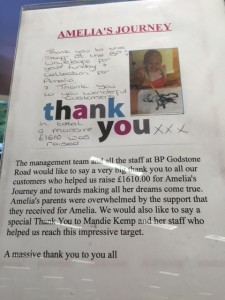 AMELIA'S JOURNEY
Thank you to the
Staff at the BP
for
your funding &
Collection for
Amelia
& Thank you
to you wonderful
Customers
thank
you xxx
In total
a massive
£1610 was
raised
The management team and all the staff at BP Godstone
Road would like to say a very big thank you to all our
customers who helped us raise £1610.00 for Amelia's
Journey and towards making all her dreams come true.
Amelia's parents were overwhelmed by the support that
they received for Amelia. We would also like to say a
special Thank You to Mandie Kemp and her staff who
helped us reach this impressive target.
A massive thank you to you all